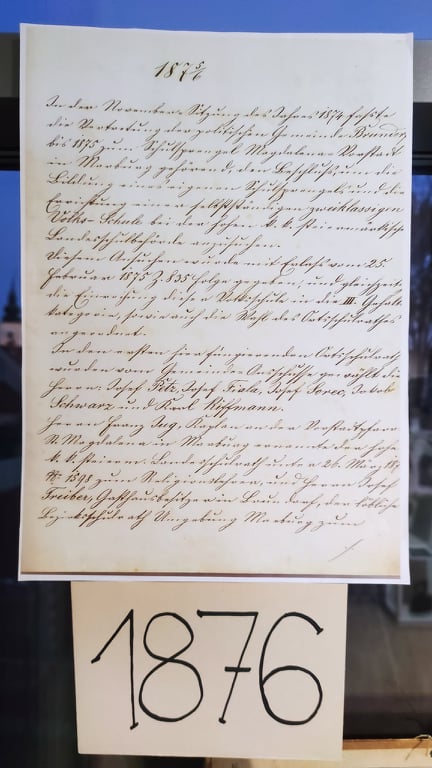 187 5/6
In der November-Sitzung des Jahres 1874 faßte
die Vertretung der politischen Gemeinde Brunndorf,
bis 1875 zum Schulsprengel Magdalena-Vorstadt
in Marburg gehörend, den Beschluß, um die
Bildung eines eigenen Schulsprengels und die
Errichtung einer selbstständigen zweiklassigen
Volks-Schule bei der hohen k. k. steiermärkischen
Landesschulbehörde anzusuchen.
Diesem Ansuchen wurde mit Erlaß vom 25.
Februar 1875 Z. 835 Folge gegeben, und gleichzeitig
die Einreihung dieser Volksschule in die III. Gehalts
kategorie, sowie auch die Wahl des Ortsschulrathes
angeordnet.
In den ersten hier fungierenden Ortsschulrath
wurden vom Gemeinde-Ausschusse gewählt die
Herrn: Josef Josef Josef Jakob
Schwarz und Karl
Herrn Franz Kaplan an der Vorstadtpfarre
St. Magdalena in Marburg ernannte der hohe
k. k. steierm. Landesschulrath unterm 26. März 187
№ 1598 zum Religionslehrer, und Herrn Josef
Gasthausbesitzer in Brunndorf, der löbliche
Bezirksschulrath Umgebung Marburg zum
1876